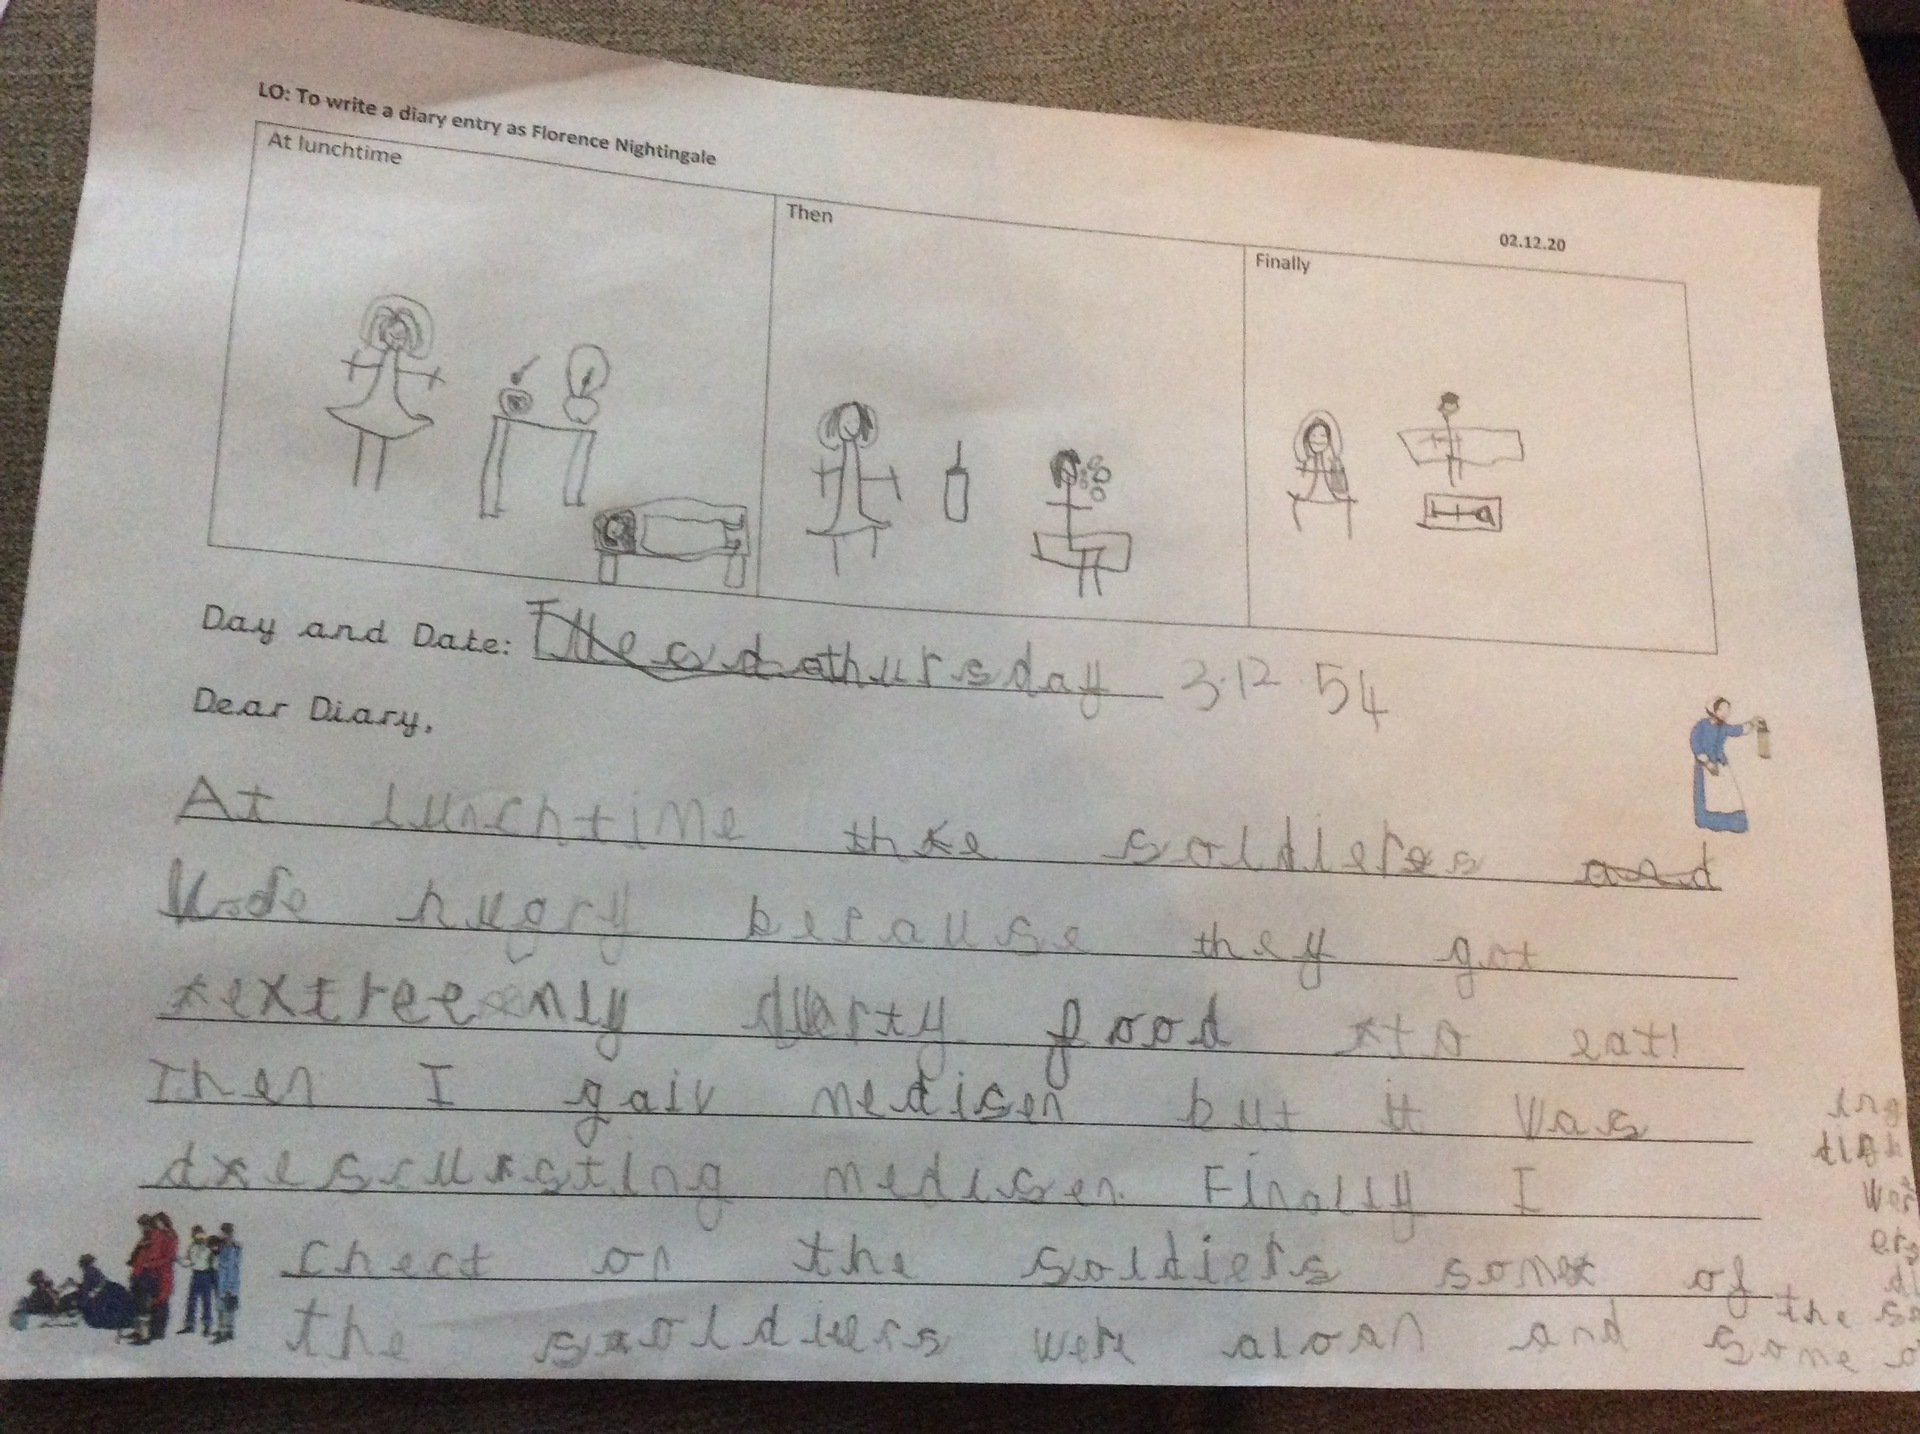 LO: To write a diary entry as Florence Nightingale
At lunchtime
Then
02.12.20
Finally
Day and Date: thursday 3.12.54
Dear Diary,
At lunchtime the soldiers
hugry because they got
extreemly durty food to eat!
Then I gaiv medisen but it was
descusting medisen. Finally I
chect on the soldiers some of
the soldiers were aloan and some
the
ing